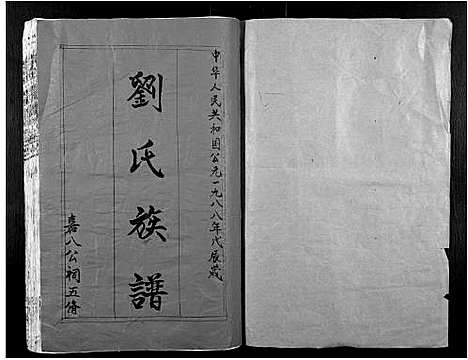 中华人民共和国公元一九八八年戊辰歲
劉氏族譜
嘉八公祠五脩